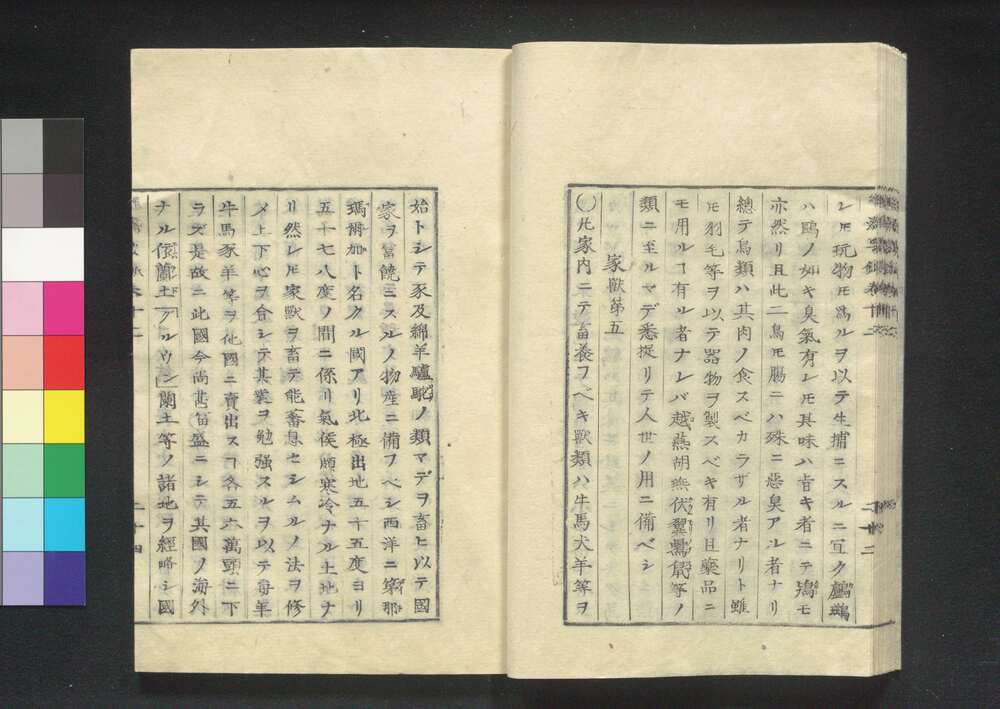 シ𪜈玩物𪜈爲ルヲ以テ生捕ニスルニ宜ク鸕鶿
ハ鴎ノ如キ臭氣有レ𪜈其味ハ旨キ者ニテ鴆モ
亦然リ且此二鳥𪜈腸ニハ殊ニ惡臭アル者ナリ
總テ鳥類ハ其肉ノ食スベカラザル者ナリト雖
𪜈羽毛等ヲ以テ器物ヲ製スベキ有リ且藥品ニ
モ用ルヿ有ル者ナレバ越燕胡燕伏翼等ノ
類ニ至ルマデ悉捉リテ人世ノ用ニ備ベシ
家獸第五
○凡家内ニテ畜養フベキ獸類ハ牛馬犬羊等ヲ
始トシテ豕及綿羊驢駝ノ類マデヲ畜ヒ以テ國
家ヲ富饒ニスルノ物産ニ備フベシ西洋ニ第那
瑪爾加ト名クル國アリ北極出地五十五度ヨリ
五十七八度ノ間ニ係リ氣候頗寒冷ナル土地ナ
リ然レ𪜈家獸ヲ畜テ能蕃息セシムルノ法ヲ修
メ上下心ヲ合シテ其業ヲ勉强スルヲ以テ毎年
牛馬豕羊等ヲ他國ニ賣出スヿ各五六萬頭ニ下
ラズ是故ニ此國今尚甚富盛ニシテ其國ノ海外
ナル依蘭土グルウンランド蘭土等ノ諸地ヲ經略シ國